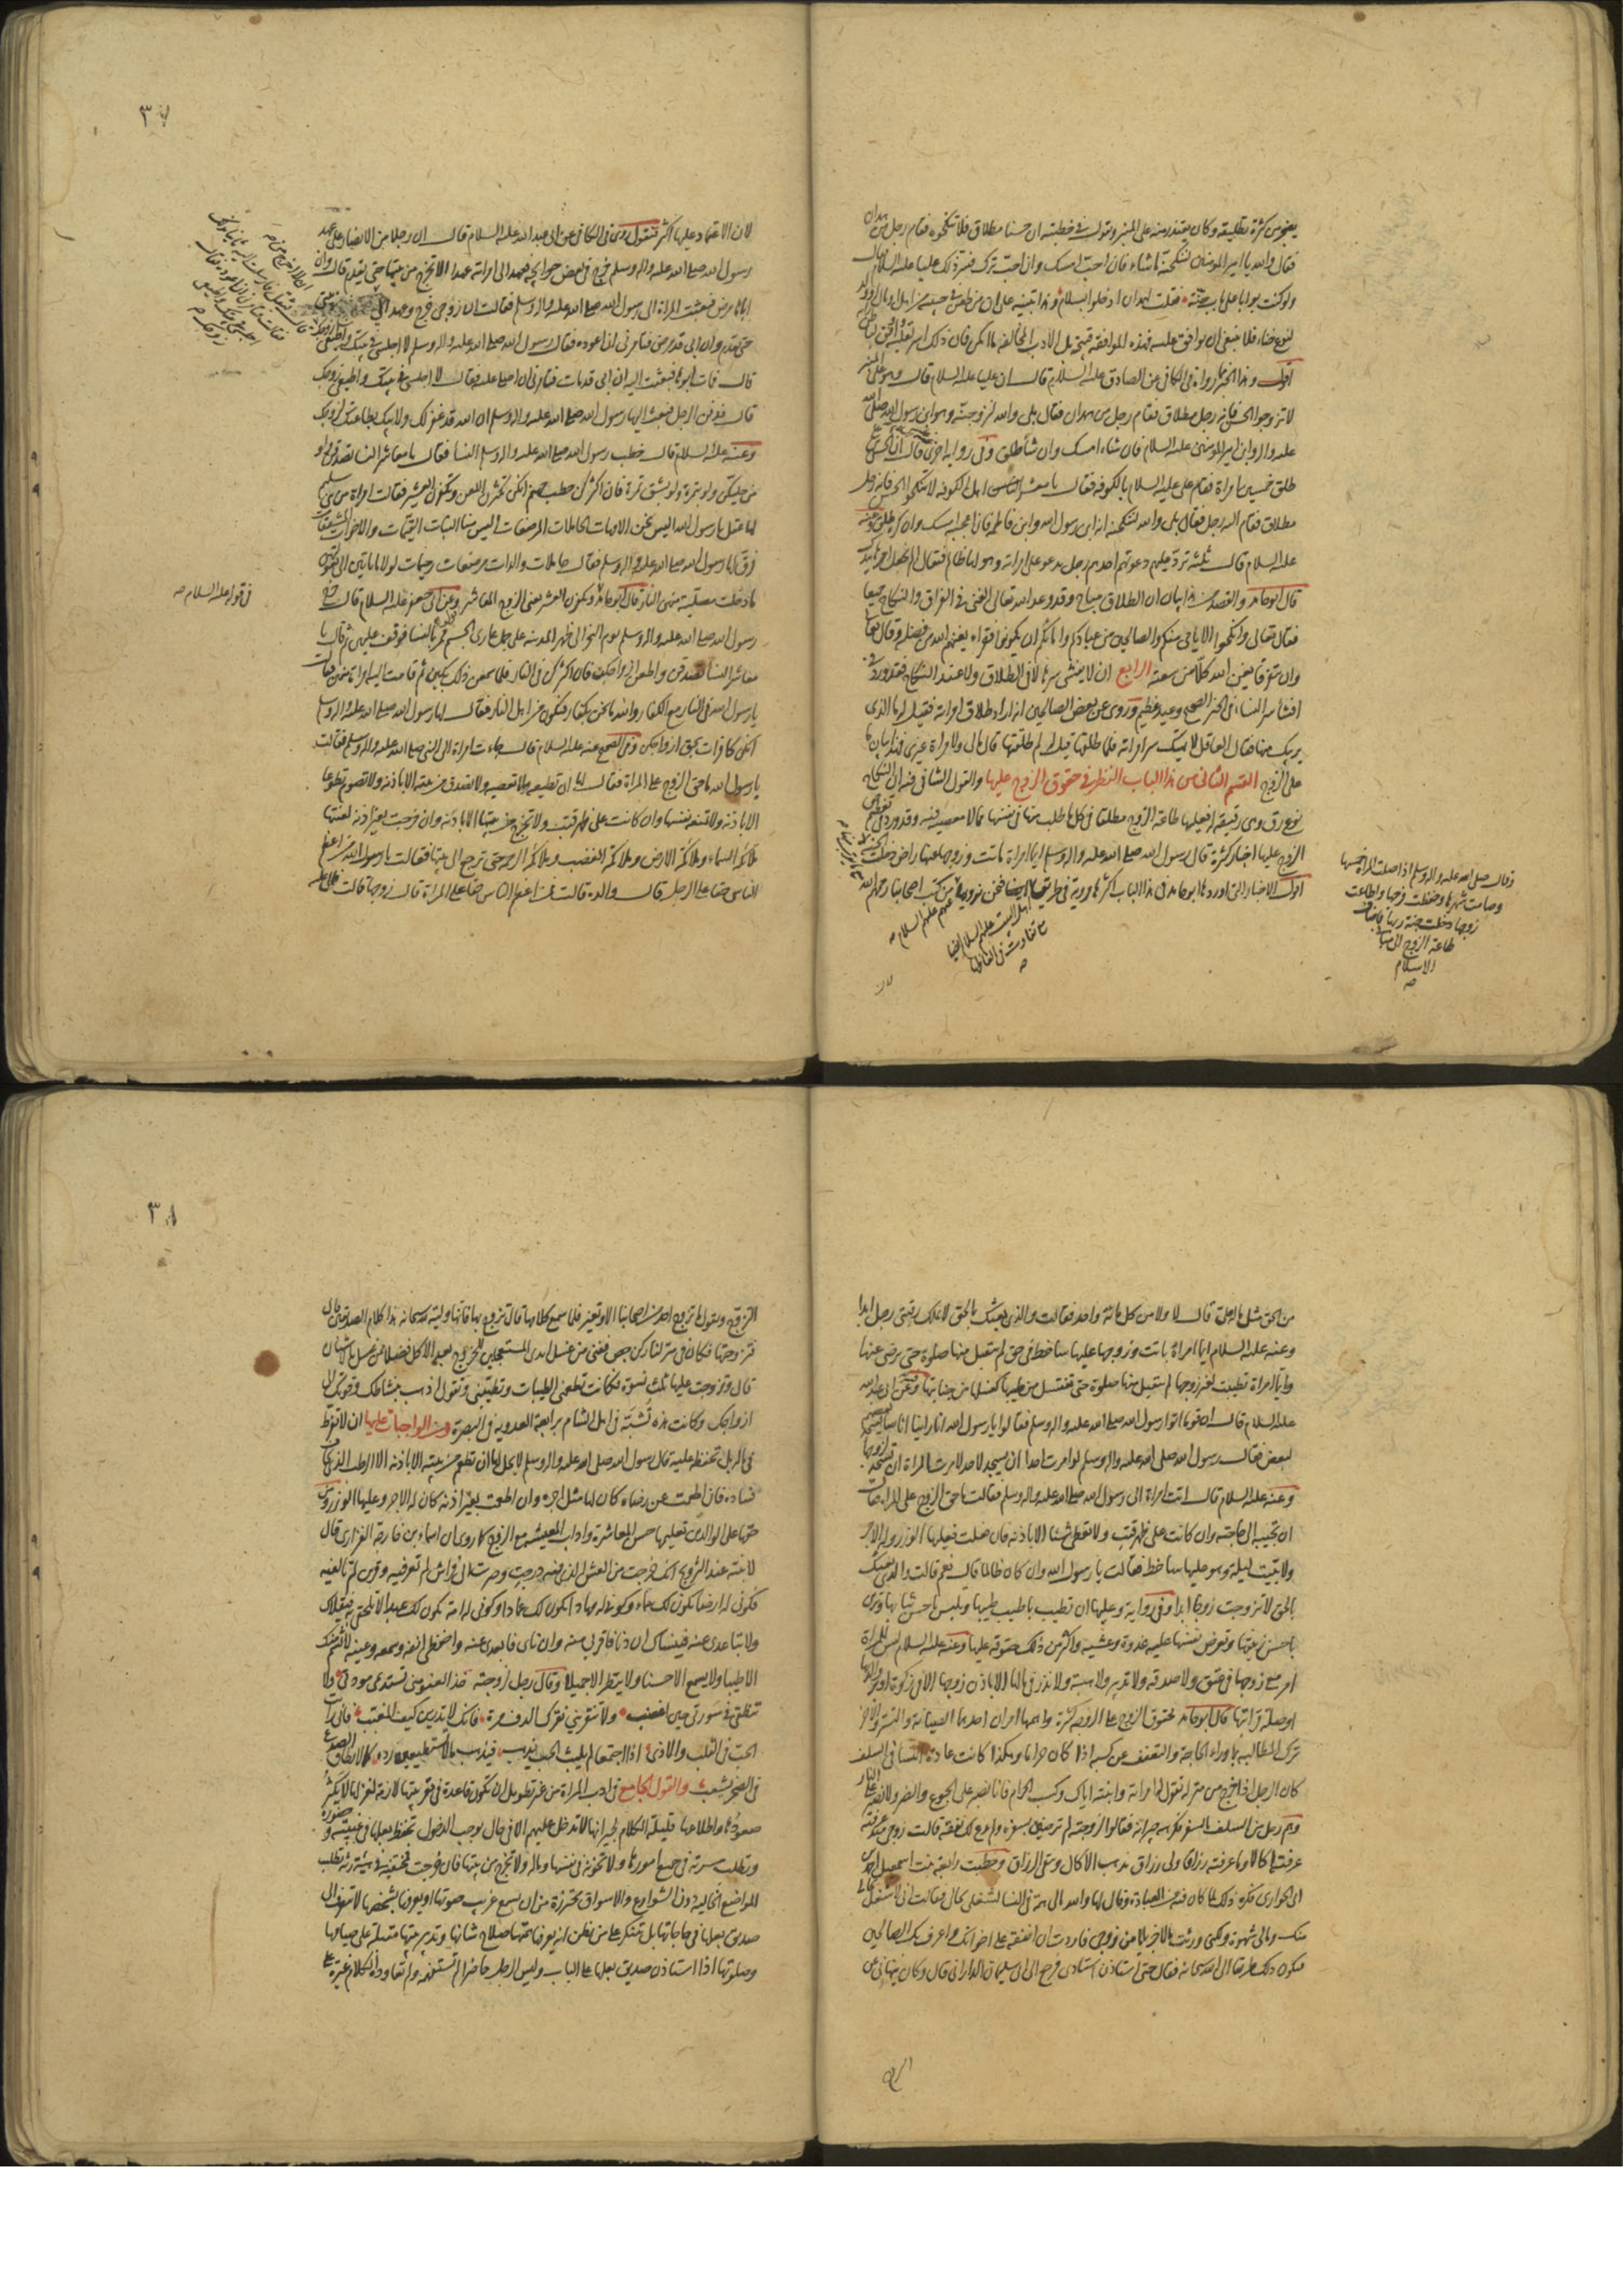 يضجر من كثرة تطليقه وكان يعتذر منه على المنبر ويقول في خطبته ان حسنا مطلاق فلا تنكحوه فقام رجل من همدان
فقال والله يا امير المؤمنين لننكحنه ما شاء فان احب امسك وان احب ترك فسر ذلك عليا عليه السلام قال
ولو كنت بوابا على باب جنة لقلت لهمدان ادخلوا بسلام وهذا تنبيه على ان من طعن في حبيبه من اهل او ولد
لنوع حياء فلا ينبغي ان يوافق عليه فهذه الموافقة قبيحة بل الادب المخالفة ما امكن فان ذلك اسر لقلبه
اقول وهذا الخبر رواه في الكافي عن الصادق عليه السلام قال ان عليا عليه السلام قال وهو على المنبر
لا تزوجوا الحسن فانه رجل مطلاق فقام رجل من همدان فقال بلى والله لنزوجنه وهو ابن رسول الله صلى الله
عليه واله وابن امير المؤمنين عليه السلام فان شاء امسك وان شاء طلق وفي رواية اخرى قال ان الحسن
طلق خمسين امراة فقام علي عليه السلام بالكوفة فقال يا معشر اهل الكوفة لا تنكحوا الحسن فانه رجل
مطلاق فقام اليه رجل فقال بلى والله لننكحنه انه ابن رسول الله وابن فاطمة فان اعجبه امسك وان كره طلق وعنه
عليه السلام قال ثلثة ترد عليهم دعوتهم احدهم رجل يدعو على امراته وهو لها ظالم فيقال الم نجعل امرها بيدك
قال ابو حامد والقصد من هذا بيان ان الطلاق مباح وقد وعد الله تعالى الغنى في الفراق والنكاح جميعا
فقال تعالى وانكحوا الايامى منكم والصالحين من عبادكم وامائكم ان يكونوا فقراء يغنهم الله من فضله وقال تعالى
وان يتفرقا يغن الله كلا من سعته الرابع ان لا يفشي سرها لا في الطلاق ولا عند النكاح فقد ورد في
افشاء سر النساء في الخبر الصحيح وعيد عظيم وروي عن بعض الصالحين انه اراد طلاق امراته فقيل له ما الذي
يريبك منها فقال العاقل لا يهتك سر امراته فلما طلقها قيل له لم طلقتها قال مالي ولامراة غيري فهذا بيان ما
على الزوج القسم الثاني من هذا الباب النظر في حقوق الزوج عليها والقول الشافي فيه ان النكاح
نوع رق وهي رقيقة له فعليها طاعة الزوج مطلقا في كل ما طلب منها في نفسها مما لا معصية فيه وقد ورد في تعظيم حق
الزوج عليها اخبار كثيرة قال رسول الله صلى الله عليه واله وسلم ايما امراة ماتت وزوجها عنها راض دخلت الجنة
اقول الاخبار التي اوردها ابو حامد في هذا الباب اكثرها مروية في طريق اهل البيت ايضا فنحن نرويها من كتب اصحابنا رحمهم الله
عنهم عليهم السلام
وقال صلى الله عليه واله وسلم اذا صلت المراة خمسها
وصامت شهرها وحفظت فرجها واطاعت
زوجها دخلت جنة ربها فاضاف
طاعة الزوج الى مباني
الاسلام
لان
٣٧
لان الاعتماد عليها اكثر فنقول روي في الكافي عن ابي عبد الله عليه السلام قال ان رجلا من الانصار على عهد
رسول الله صلى الله عليه واله وسلم خرج في بعض حوائجه فعهد الى امراته عهدا الا تخرج من بيتها حتى يقدم قال وان
اباها مرض فبعثت المراة الى رسول الله صلى الله عليه واله وسلم فقالت ان زوجي خرج وعهد الي
حتى يقدم وان ابي قد مرض فتامرني ان اعوده فقال رسول الله صلى الله عليه واله وسلم لا اجلسي في بيتك واطيعي زوجك
قال فمات ابوها فبعثت اليه ان ابي قد مات فتامرني ان اصلي عليه فقال لا اجلسي في بيتك واطيعي زوجك
قال فدفن الرجل فبعث اليها رسول الله صلى الله عليه واله وسلم ان الله قد غفر لك ولابيك بطاعتك لزوجك
وعنه عليه السلام قال خطب رسول الله صلى الله عليه واله وسلم النساء فقال يا معاشر النساء تصدقن ولو
من حليكن ولو بتمرة ولو بشق تمرة فان اكثركن حطب جهنم انكن تكثرن اللعن وتكفرن العشيرة فقالت امراة من بني سليم
لها عقل يا رسول الله اليس نحن الامهات الحاملات المرضعات اليس منا البنات المقيمات والاخوات المشفقات
فرق لها رسول الله صلى الله عليه واله وسلم فقال حاملات والدات مرضعات رحيمات لولا ما ياتين الى بعولتهن
ما دخلت مصلية منهن النار قال ابو حامد وتكفرن العشير يعني الزوج المعاشر وعن ابي جعفر عليه السلام قال خرج
رسول الله صلى الله عليه واله وسلم يوم النحر الى ظهر المدينة على جمل عاري الجسم فمر بالنساء فوقف عليهن ثم قال يا
معاشر النساء تصدقن واطعن ازواجكن فان اكثركن في النار فلما سمعن ذلك بكين ثم قامت اليه امراة منهن فقالت
يا رسول الله في النار مع الكفار والله ما نحن بكفار فنكون من اهل النار فقال لها رسول الله صلى الله عليه واله وسلم
انكن كافرات بحق ازواجكن وفي الصحيح عنه عليه السلام قال جاءت امراة الى النبي صلى الله عليه واله وسلم فقالت
يا رسول الله ما حق الزوج على المراة فقال لها ان تطيعه ولا تعصيه ولا تصدق من بيته الا باذنه ولا تصوم تطوعا
الا باذنه ولا تمنعه نفسها وان كانت على ظهر قتب ولا تخرج من بيتها الا باذنه وان خرجت بغير اذنه لعنتها
ملائكة السماء وملائكة الارض وملائكة الغضب وملائكة الرحمة حتى ترجع الى بيتها فقالت يا رسول الله من اعظم
الناس حقا على الرجل قال والده قالت فمن اعظم الناس حقا على المراة قال زوجها قالت فمالي عليه
في قوله عليه السلام
من الحق مثل ما له علي قال لا ولا من كل مائة واحد فقالت والذي بعثك بالحق لا يملك رقبتي رجل ابدا
وعنه عليه السلام ايما امراة باتت وزوجها عليها ساخط في حق لم تقبل منها صلوة حتى يرضى عنها
وايما امراة تطيبت لغير زوجها لم تقبل منها صلوة حتى تغتسل من طيبها كغسلها من جنابتها وعن ابي عبد الله
عليه السلام قال ان قوما اتوا رسول الله صلى الله عليه واله وسلم فقالوا يا رسول الله انا راينا اناسا يسجد بعضهم
لبعض فقال رسول الله صلى الله عليه واله وسلم لو امرت احدا ان يسجد لاحد لامرت المراة ان تسجد لزوجها
وعنه عليه السلام قال اتت امراة الى رسول الله صلى الله عليه واله وسلم فقالت ما حق الزوج على المراة فقال
ان تجيبه الى حاجته وان كانت على ظهر قتب ولا تعطي شيئا الا باذنه فان فعلت فعليها الوزر وله الاجر
ولا تبيت ليلة وهو عليها ساخط فقالت يا رسول الله وان كان ظالما قال نعم قالت والذي بعثك
بالحق لا تزوجت زوجا ابدا وفي رواية وعليها ان تطيب باطيب طيبها وتلبس باحسن ثيابها وتزين
باحسن زينتها وتعرض نفسها عليه غدوة وعشية واكثر من ذلك حقوقه عليها وعنه عليه السلام ليس للمراة
امر مع زوجها في عتق ولا صدقة ولا تدبير ولا هبة ولا نذر في مالها الا باذن زوجها الا في زكوة او بر والديها
او صلة قرابتها قال ابو حامد حقوق الزوج على الزوجة كثيرة واهمها امران احدهما الصيانة والستر والاخر
ترك المطالبة بما وراء الحاجة والتعفف عن كسبه اذا كان حراما وهكذا كانت عادة النساء في السلف
كان الرجل اذا خرج من منزله تقول له امراته وابنته اياك وكسب الحرام فانا نصبر على الجوع والضر ولا نصبر على النار
وهم رجل من السلف بالسفر فكره جيرانه فقالوا لزوجته لم ترضين بسفره ولم يدع لك نفقة قالت زوجي منذ عرفته
عرفته اكالا وما عرفته رزاقا ولي رزاق يذهب الاكال ويبقى الرزاق وخطبت رابعة بنت اسمعيل احمد بن
ابي الحواري فكره ذلك لما كان فيه من العبادة وقال لها والله مالي همة في النساء لشغلي بحالي فقالت اني لاشغل بحالي
منك ومالي شهوة ولكني ورثت مالا جزيلا من زوجي فاردت ان انفقه على اخوانك واعرف بك الصالحين
فيكون ذلك طريقا الى الله سبحانه فقال حتى استاذن استاذي فرجع الى ابي سليمان الداراني قال وكان ينهاني عن
٣٨
التزوج ويقول ما تزوج احد من اصحابنا الا وتغير فلما سمع كلامها قال تزوج بها فانها ولية لله سبحانه هذا كلام الصديقين قال
فتزوجتها فكان في منزلنا كر من جص ففني من غسل ايدي المستعجلين للخروج بعد الاكل فضلا عمن غسل بالاشنان
قال وتزوجت عليها ثلث نسوة فكانت تطعمني الطيبات وتطيبني وتقول اذهب بنشاطك وقوتك الى
ازواجك وكانت هذه تشبه في اهل الشام برابعة العدوية في البصرة ومن الواجبات عليها ان لا تفرط
في ماله بل تحفظه عليه قال رسول الله صلى الله عليه واله وسلم لا يحل لها ان تطعم من بيته الا باذنه الا الرطب الذي يخاف
فساده فان اطعمت عن رضاه كان لها مثل اجره وان اطعمت بغير اذنه كان له الاجر وعليها الوزر ومن
حقها على الوالدين تعليمها حسن المعاشرة واداب المعيشة مع الزوج كما روي ان اسماء بن خارجة الفزاري قال
لابنته عند التزويج انك خرجت من العش الذي فيه درجت وصرت الى فراش لم تعرفيه وقرين لم تالفيه
فكوني له ارضا يكون لك سماء وكوني له مهادا يكون لك عمادا وكوني له امة يكون لك عبدا لا تلحفي به فيقلاك
ولا تباعدي عنه فينساك ان دنا فاقربي منه وان ناى فابعدي عنه واحفظي انفه وسمعه وعينه لا يشم منك
الا طيبا ولا يسمع الا حسنا ولا ينظر الا جميلا وقال رجل لزوجته خذي العفو مني تستديمي مودتي ولا
تنطقي في سورتي حين اغضب ولا تنقريني نقرك الدف مرة فانك لا تدرين كيف المغيب فاني رايت
الحب في القلب والاذى اذا اجتمعا لم يلبث الحب يذهب
والقول الجامع في ادب المراة من غير تطويل ان تكون قاعدة في قعر بيتها لازمة لمغزلها لا يكثر
صعودها واطلاعها قليلة الكلام لجيرانها لا تدخل عليهم الا في حال يوجب الدخول تحفظ بعلها في غيبته وحضوره
وتطلب مسرته في جميع امورها ولا تخونه في نفسها وماله ولا تخرج من بيتها فان خرجت فمختفية في هيئة رثة تطلب
المواضع الخالية دون الشوارع والاسواق محترزة من ان يسمع غريب صوتها او يعرفها بشخصها لا تتعرف الى
صديق بعلها في حاجاتها بل تتنكر على من تظن انه يعرفها همتها صلاح شانها وتدبير بيتها مقبلة على صيامها
وصلوتها اذا استاذن صديق بعلها على الباب وليس الرجل حاضرا لم تستفهمه ولم تعاوده الكلام غيرة على